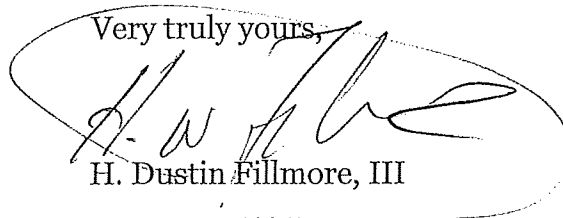 Very truly yours,
H. Dustin Fillmore, III